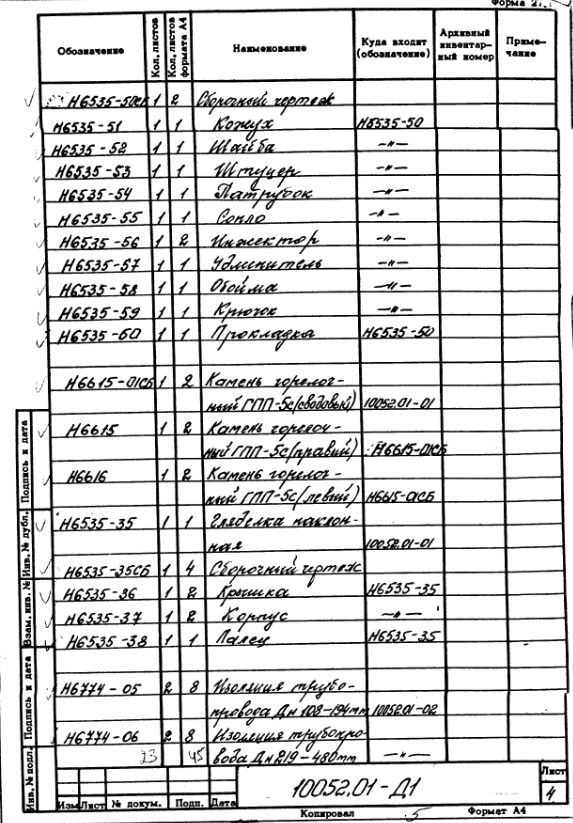 Форма 2
Обозначение Кол. листов Кол. листов формата А4 Наименование Куда входит (обозначение) Архивный инвентар-ный номер Приме-чание
Н6535-50СБ 1 2 Сборочный чертеж
Н6535-51 1 1 Кожух Н6535-50
Н6535-52 1 1 Шайба —"—
Н6535-53 1 1 Штуцер —"—
Н6535-54 1 1 Патрубок —"—
Н6535-55 1 1 Сопло —"—
Н6535-56 1 2 Инжектор —"—
Н6535-57 1 1 Удлинитель —"—
Н6535-58 1 1 Обойма —"—
Н6535-59 1 1 Крючок —"—
Н6535-60 1 1 Прокладка Н6535-50
Н6615-01СБ 1 2 Камень горелоч-
ный ГПП-5с(сводовый) 10052.01-01
Н6615 1 2 Камень горелоч-
ный ГПП-5с(правый) Н6615-01СБ
Н6616 1 2 Камень горелоч-
ный ГПП-5с(левый) Н6615-01СБ
Н6535-35 1 1 Гляделка наклон-
ная 10052.01-01
Н6535-35СБ 1 4 Сборочный чертеж
Н6535-36 1 2 Крышка Н6535-35
Н6535-37 1 2 Корпус —"—
Н6535-38 1 1 Палец Н6535-35
Н6774-05 2 8 Изоляция трубо-
провода Дн 108-194mm 10052.01-02
Н6774-06 2 8 Изоляция трубопро-
23 45 вода Дн 219-480mm —"—
Инв. № подл. Подпись и дата Взам. инв. № Инв. № дубл. Подпись и дата
Изм Лист № докум. Подп. Дата
10052.01-Д1
Лист
4
Копировал 5 Формат А4